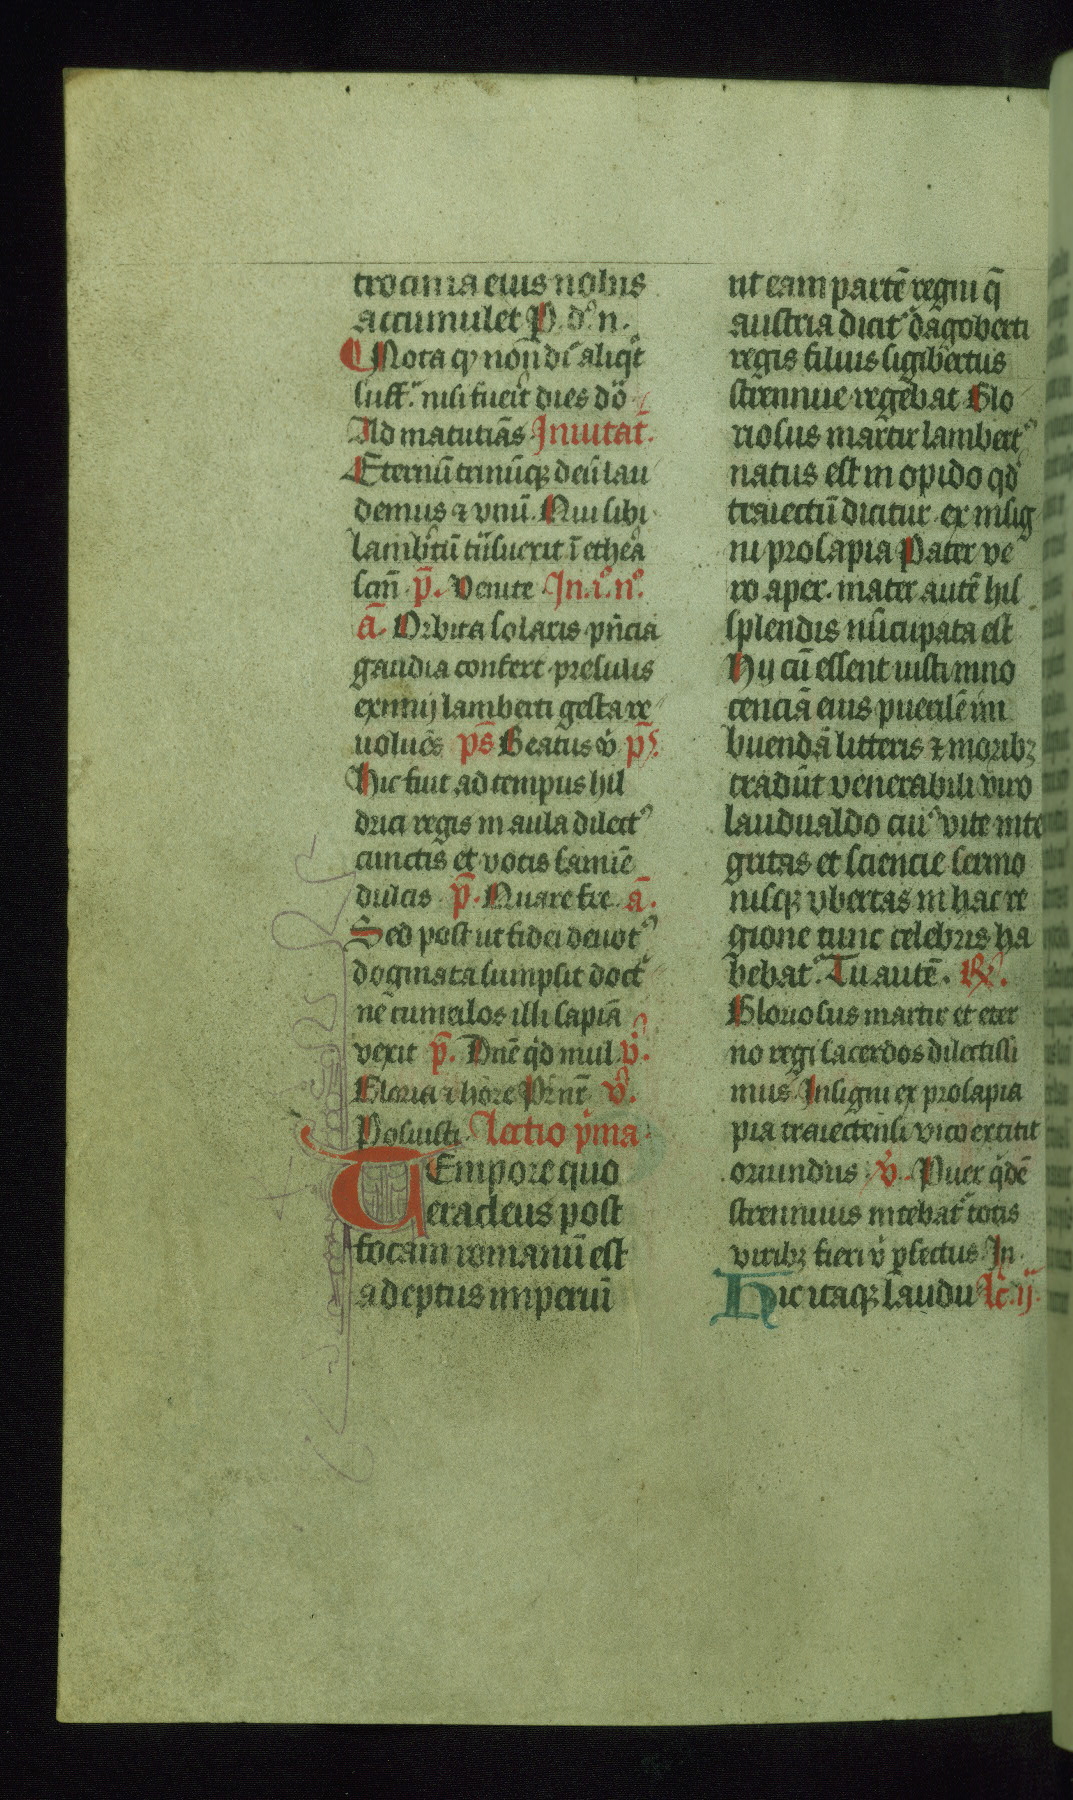 trocinia eius nobis
accumulet P. dº. n.
Nota qꝫ non dī aliq̄t
suff. nisi fuerit dies dō
Ad matutīas Inuitat̄.
Eternū trinūqꝫ deū lau
demus ⁊ vnū. Qui sibi
lamb̄tū trāsuexit ī ethea
scm̄. p̄. Venite In. i. n.
a̅. Orbita solaris p̄ncia
gaudia confert presulis
eximij lamberti gesta re
uoluēs ps̄ Beatus v̄ pꝰ.
Hic fuit ad tempus hil
drici regis in aula dilectꝰ
cunctis et vocis famīe
dulcis p̄. Quare fre. a̅.
Sed post ut fidei deuotꝰ
dogmata sumpsit doct̄
nē cumulos illi sapīa
vexit p̄. Dn̄e qͥd mul. v̄.
Gloria ⁊ hore v̄.
Posuisti. Lectio pͥma
Tempore quo
eracleus post
focam romanū est
adeptus imperiū
ut eam partē regni q̄
austria dicit᷒ dagoberti
regis filius sigibertus
strennue regebat Glo
riosus martir lambertꝰ
natus est in opido qd̄
traiectū dicitur ex insig
ni prosapia Pater ve
ro aper. mater autē hil
splendis nūcupata est
Hij cū essent iusti inno
cenciā eius puerilē im
buendā litteris ⁊ moribꝫ
tradūt venerabili viro
laudualdo cuiꝰ vite inte
gritas et sciencie sermo
nisqꝫ vbertas in hac re
gione tunc celebris ha
bebat᷒. Tu autē. ℟.
Gloriosus martir et eter
no regi sacerdos dilectissi
mus Insigni ex prosapia
pia traiectensi vico extitit
oriundus. v̄. Puer qͥdē
strennuus nitebat᷒ totis
viribꝫ fieri v̄ ꝑfectus In.
Hic itaqꝫ laudu Lc̄. ij.